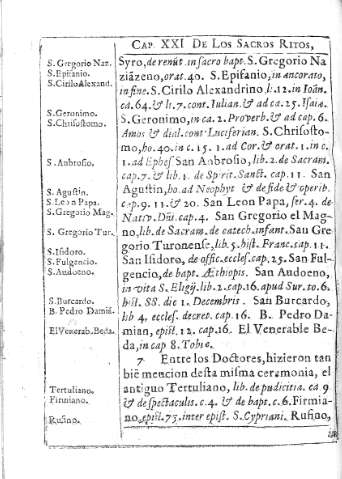 CAP. XXI DE LOS SACROS RITOS,
S. Gregorio Naz.
S. Epifanio.
S. Cirilo Alexand.
S. Geronimo.
S. Chrisostomo.
S. Ambrosio.
S. Agustin.
S. Leon Papa.
S. Gregorio Mag.
S. Gregorio Tur.
S. Isidoro.
S. Fulgencio.
S. Audoeno.
S. Burcardo.
B. Pedro Damiã.
El Venerab. Beda.
Tertuliano.
Firmiano.
Rufino.
Syro, de renũt. in sacro bapt. S. Gregorio Na
ziãzeno, orat. 40. S. Epifanio, in ancorato,
in fine. S. Cirilo Alexandrino li. 12. in Ioãn.
ca. 64. & li. 7. cont. Iulian. & ad ca. 25. Isaiæ.
S. Geronimo, in ca. 2. Proverb. & ad cap. 6.
Amos & dial. cont. Luciferian. S. Chrisosto-
mo, ho. 40. in c. 15. 1. ad Cor. & orat. 1. in c.
1. ad Ephes. San Ambrosio, lib. 2. de Sacram.
cap. 7. & lib. 1. de Spirit. Sanct. cap. 11. San
Agustin, ho. ad Neophyt. & de fide & operib.
cap. 9. 11. & 20. San Leon Papa, ser. 4. de
Nativ. Dñi. cap. 4. San Gregorio el Mag-
no, lib. de Sacram. de catech. infant. San Gre
gorio Turonense, lib. 5. hist. Franc. cap. 11.
San Isidoro, de offic. eccles. cap. 25. San Ful-
gencio, de bapt. Æthiopis. San Audoeno,
in vita S. Eligij. lib. 2. cap. 16. apud Sur. to. 6.
hist. SS. die 1. Decembris. San Burcardo,
lib. 4. eccles. decret. cap. 16. B. Pedro Da-
mian, epist. 12. cap. 16. El Venerable Be-
da, in cap 8. Tobiæ.
7 Entre los Doctores, hizieron tan
biẽ mencion desta misma ceremonia, el
antiguo Tertuliano, lib. de pudicitia. ca 9
& de spectaculis. c. 4. & de bapt. c. 6. Firmia-
no, epist. 75. inter epist. S. Cypriani. Rufino,